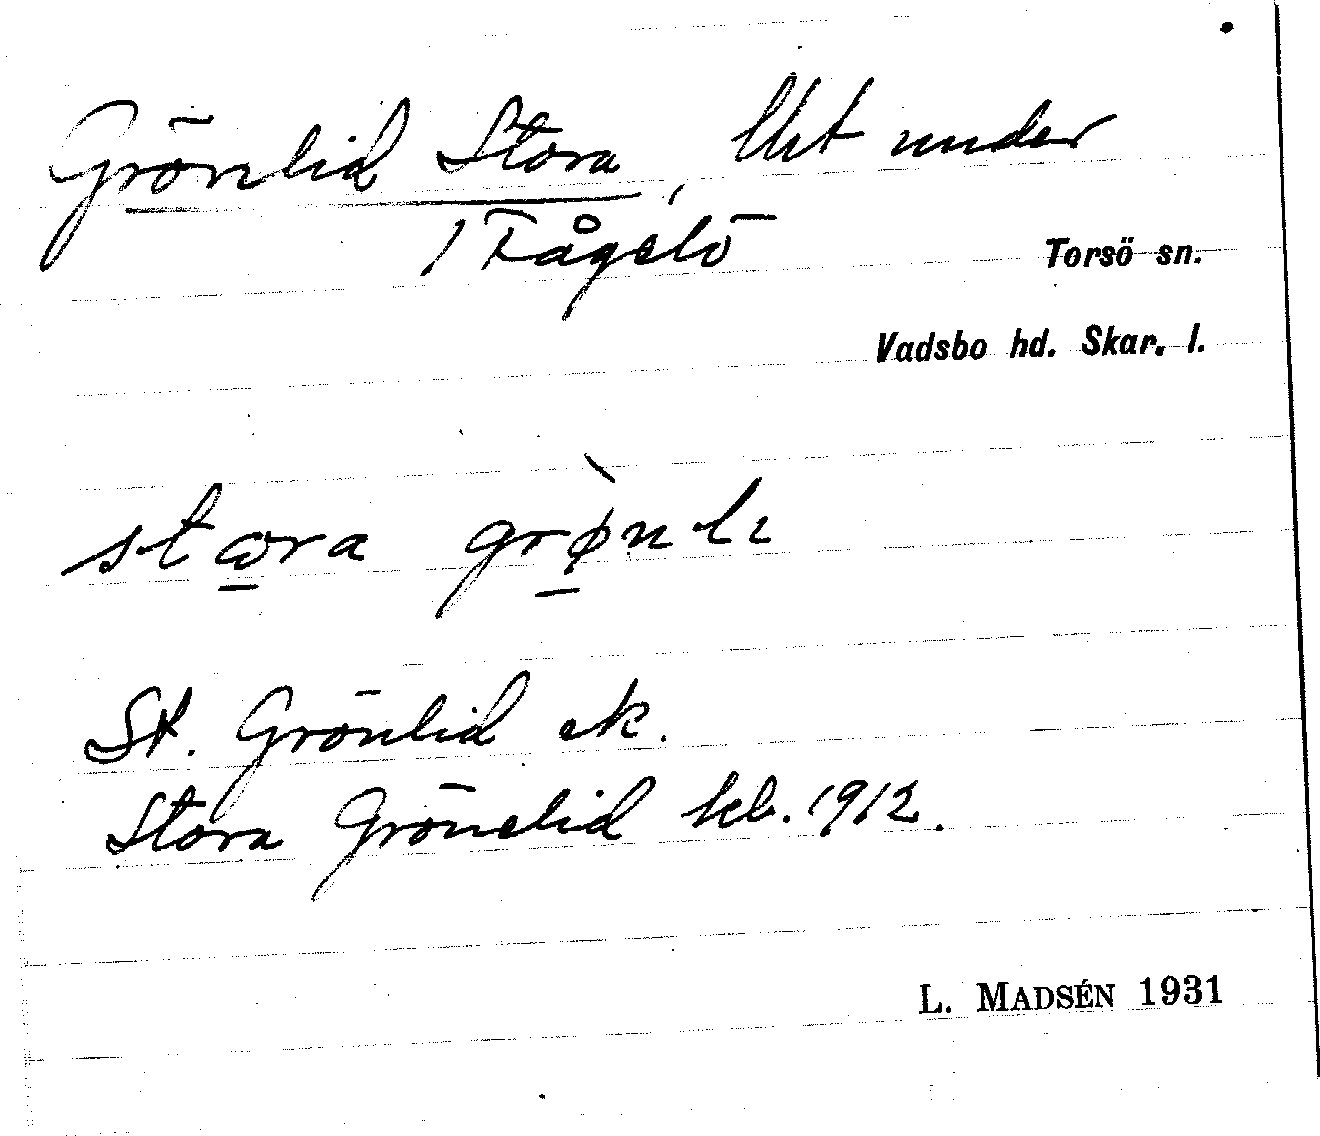 Grönlid Stora, lht under
1 Fågelö
Torsö sn.
Vadsbo hd. Skar. l.
stωra grø̀nlı
St. Grönlid ek.
Stora Grönelid kb. 1912.
L. MADSÉN 1931